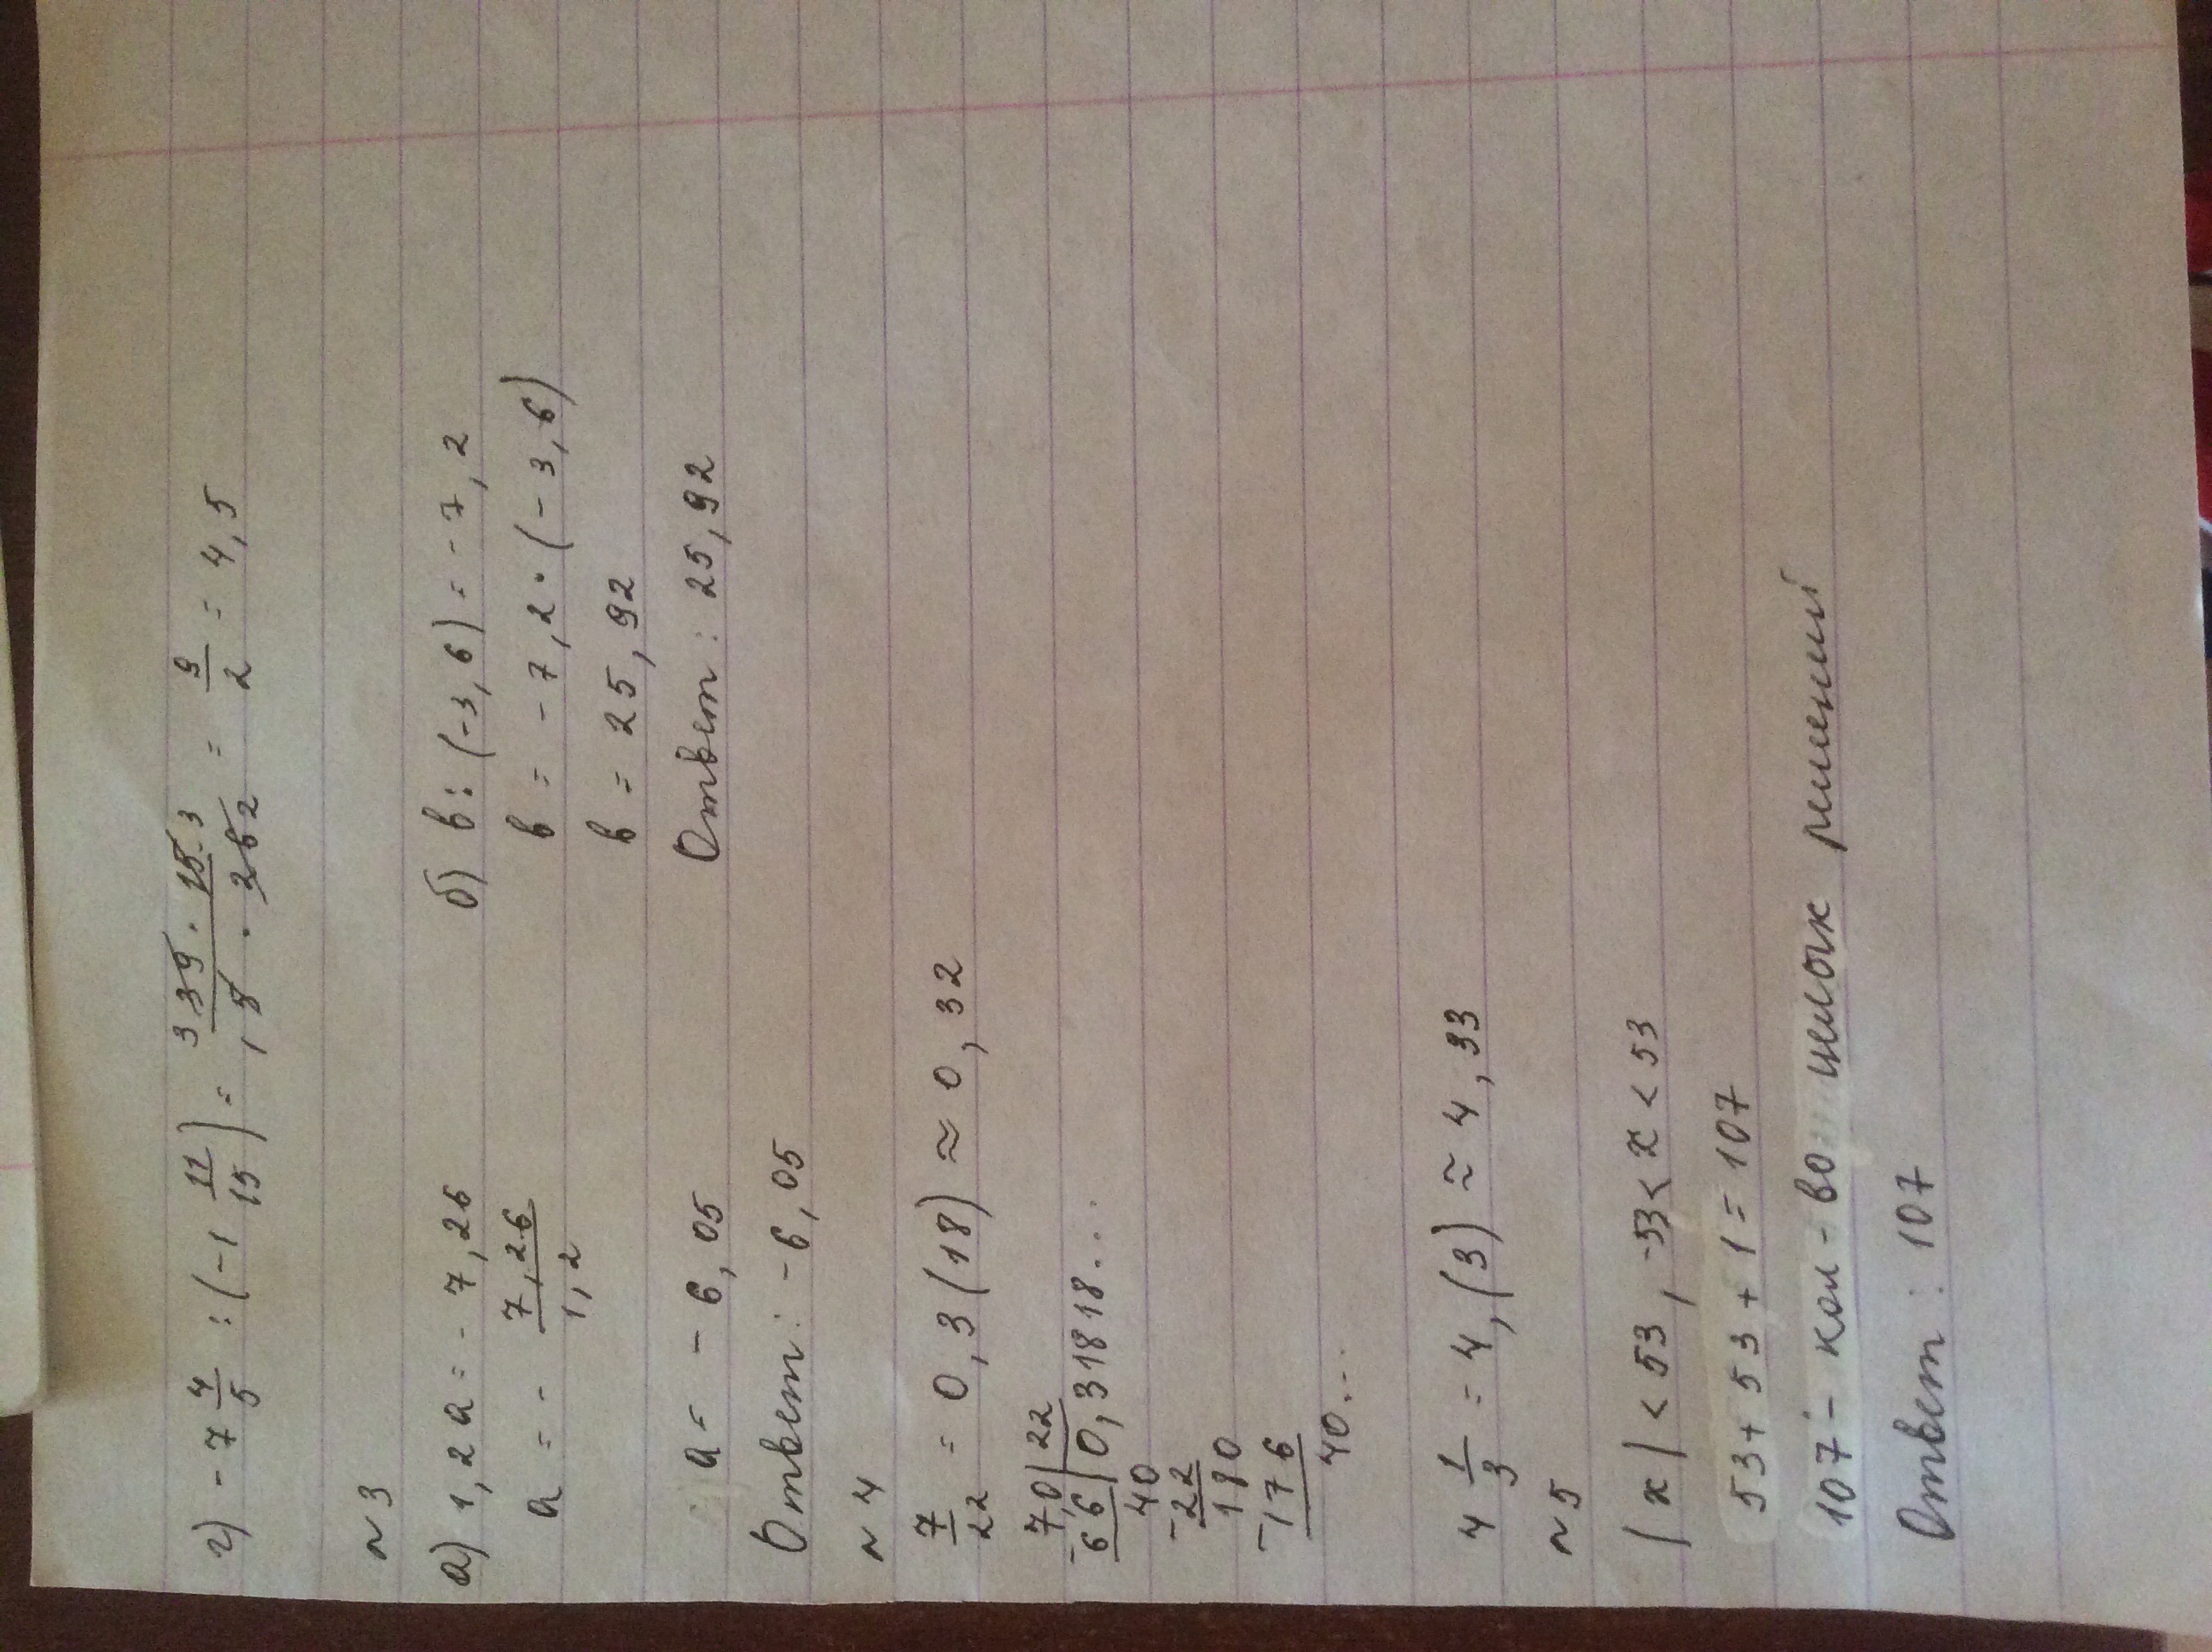 г) -7 4/5 : (-1 11/15) = 3 39 · 15 3 / 1 5 · 26 2 = 9/2 = 4,5
№3
а) 1,2 a = -7,26
a = - 7,26/1,2
a = -6,05
Ответ: -6,05
б) в : (-3,6) = -7,2
в = -7,2 · (-3,6)
в = 25,92
Ответ: 25,92
№4
7/22 = 0,3(18) ≈ 0,32
-7,0 | 22
66 | 0,31818...
40
-22
180
-176
40...
4 1/3 = 4,(3) ≈ 4,33
№5
|x| < 53, -53 < x < 53
53 + 53 + 1 = 107
107 - кол-во целых решений
Ответ: 107